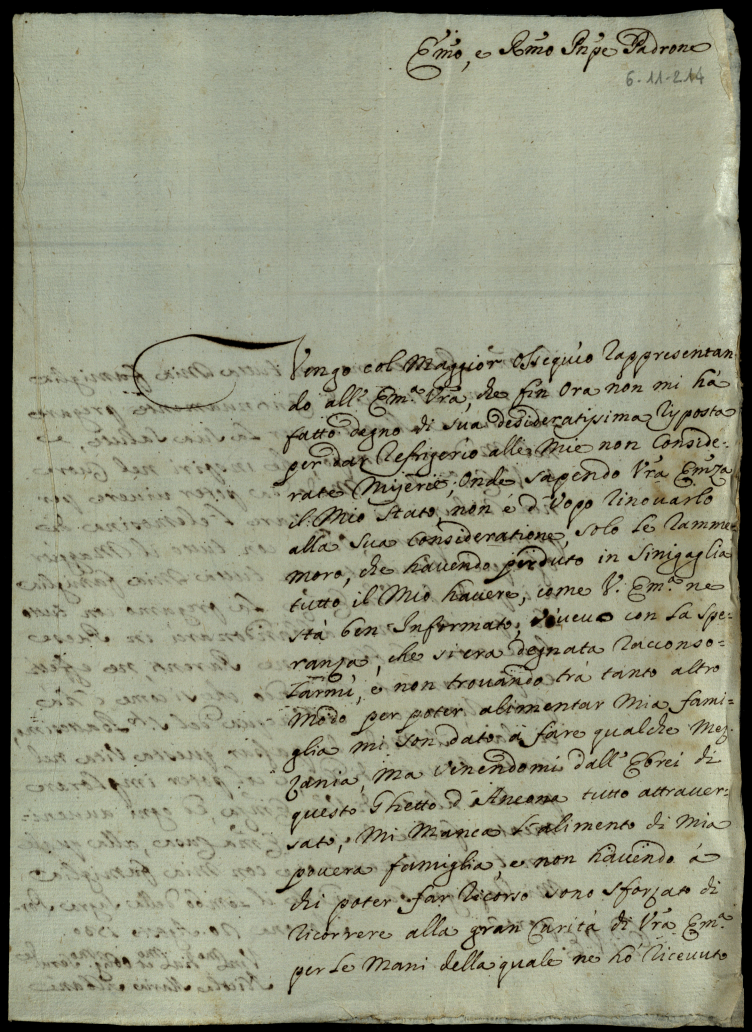 Em̃o, e Rm̃o Pn̄pe Padrone
6-11-214
Vengo col Maggior Ossequio rappresentan-
do all' Em.ª Vrã, che fin Ora non mi hà
fatto degno di sua desideratissima risposta
per dar Refrigerio alle Mie non Conside-
rate Miserie; Onde sapendo Vrã Em̃za
il Mio Stato, non è d'Uopo rinovarlo
alla sua consideratione, solo le ramme-
moro, che havendo perduto in Sinigaglia
tutto il Mio havere, come V. Em.ª ne
stà ben Informato, vivevo con la spe-
ranza, che si era degnata racconso-
larmi, e non trovando trà tanto altro
Modo per poter alimentar Mia fami-
glia mi son dato à fare qualche Mez-
zania, ma venendomi dall' Ebrei di
questo Ghetto d'Ancona tutto attraver-
sato, Mi Manca l'alimento di Mia
povera famiglia, e non havendo à
chi poter far ricorso sono sforzato di
ricorrere alla gran Carità di Vrã Em.ª
per le Mani della quale ne hò ricevuto